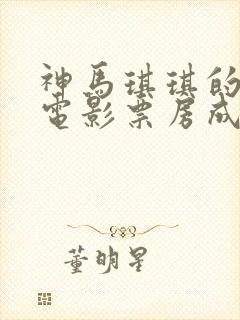 神馬琪琪的
電影票房成
董明星